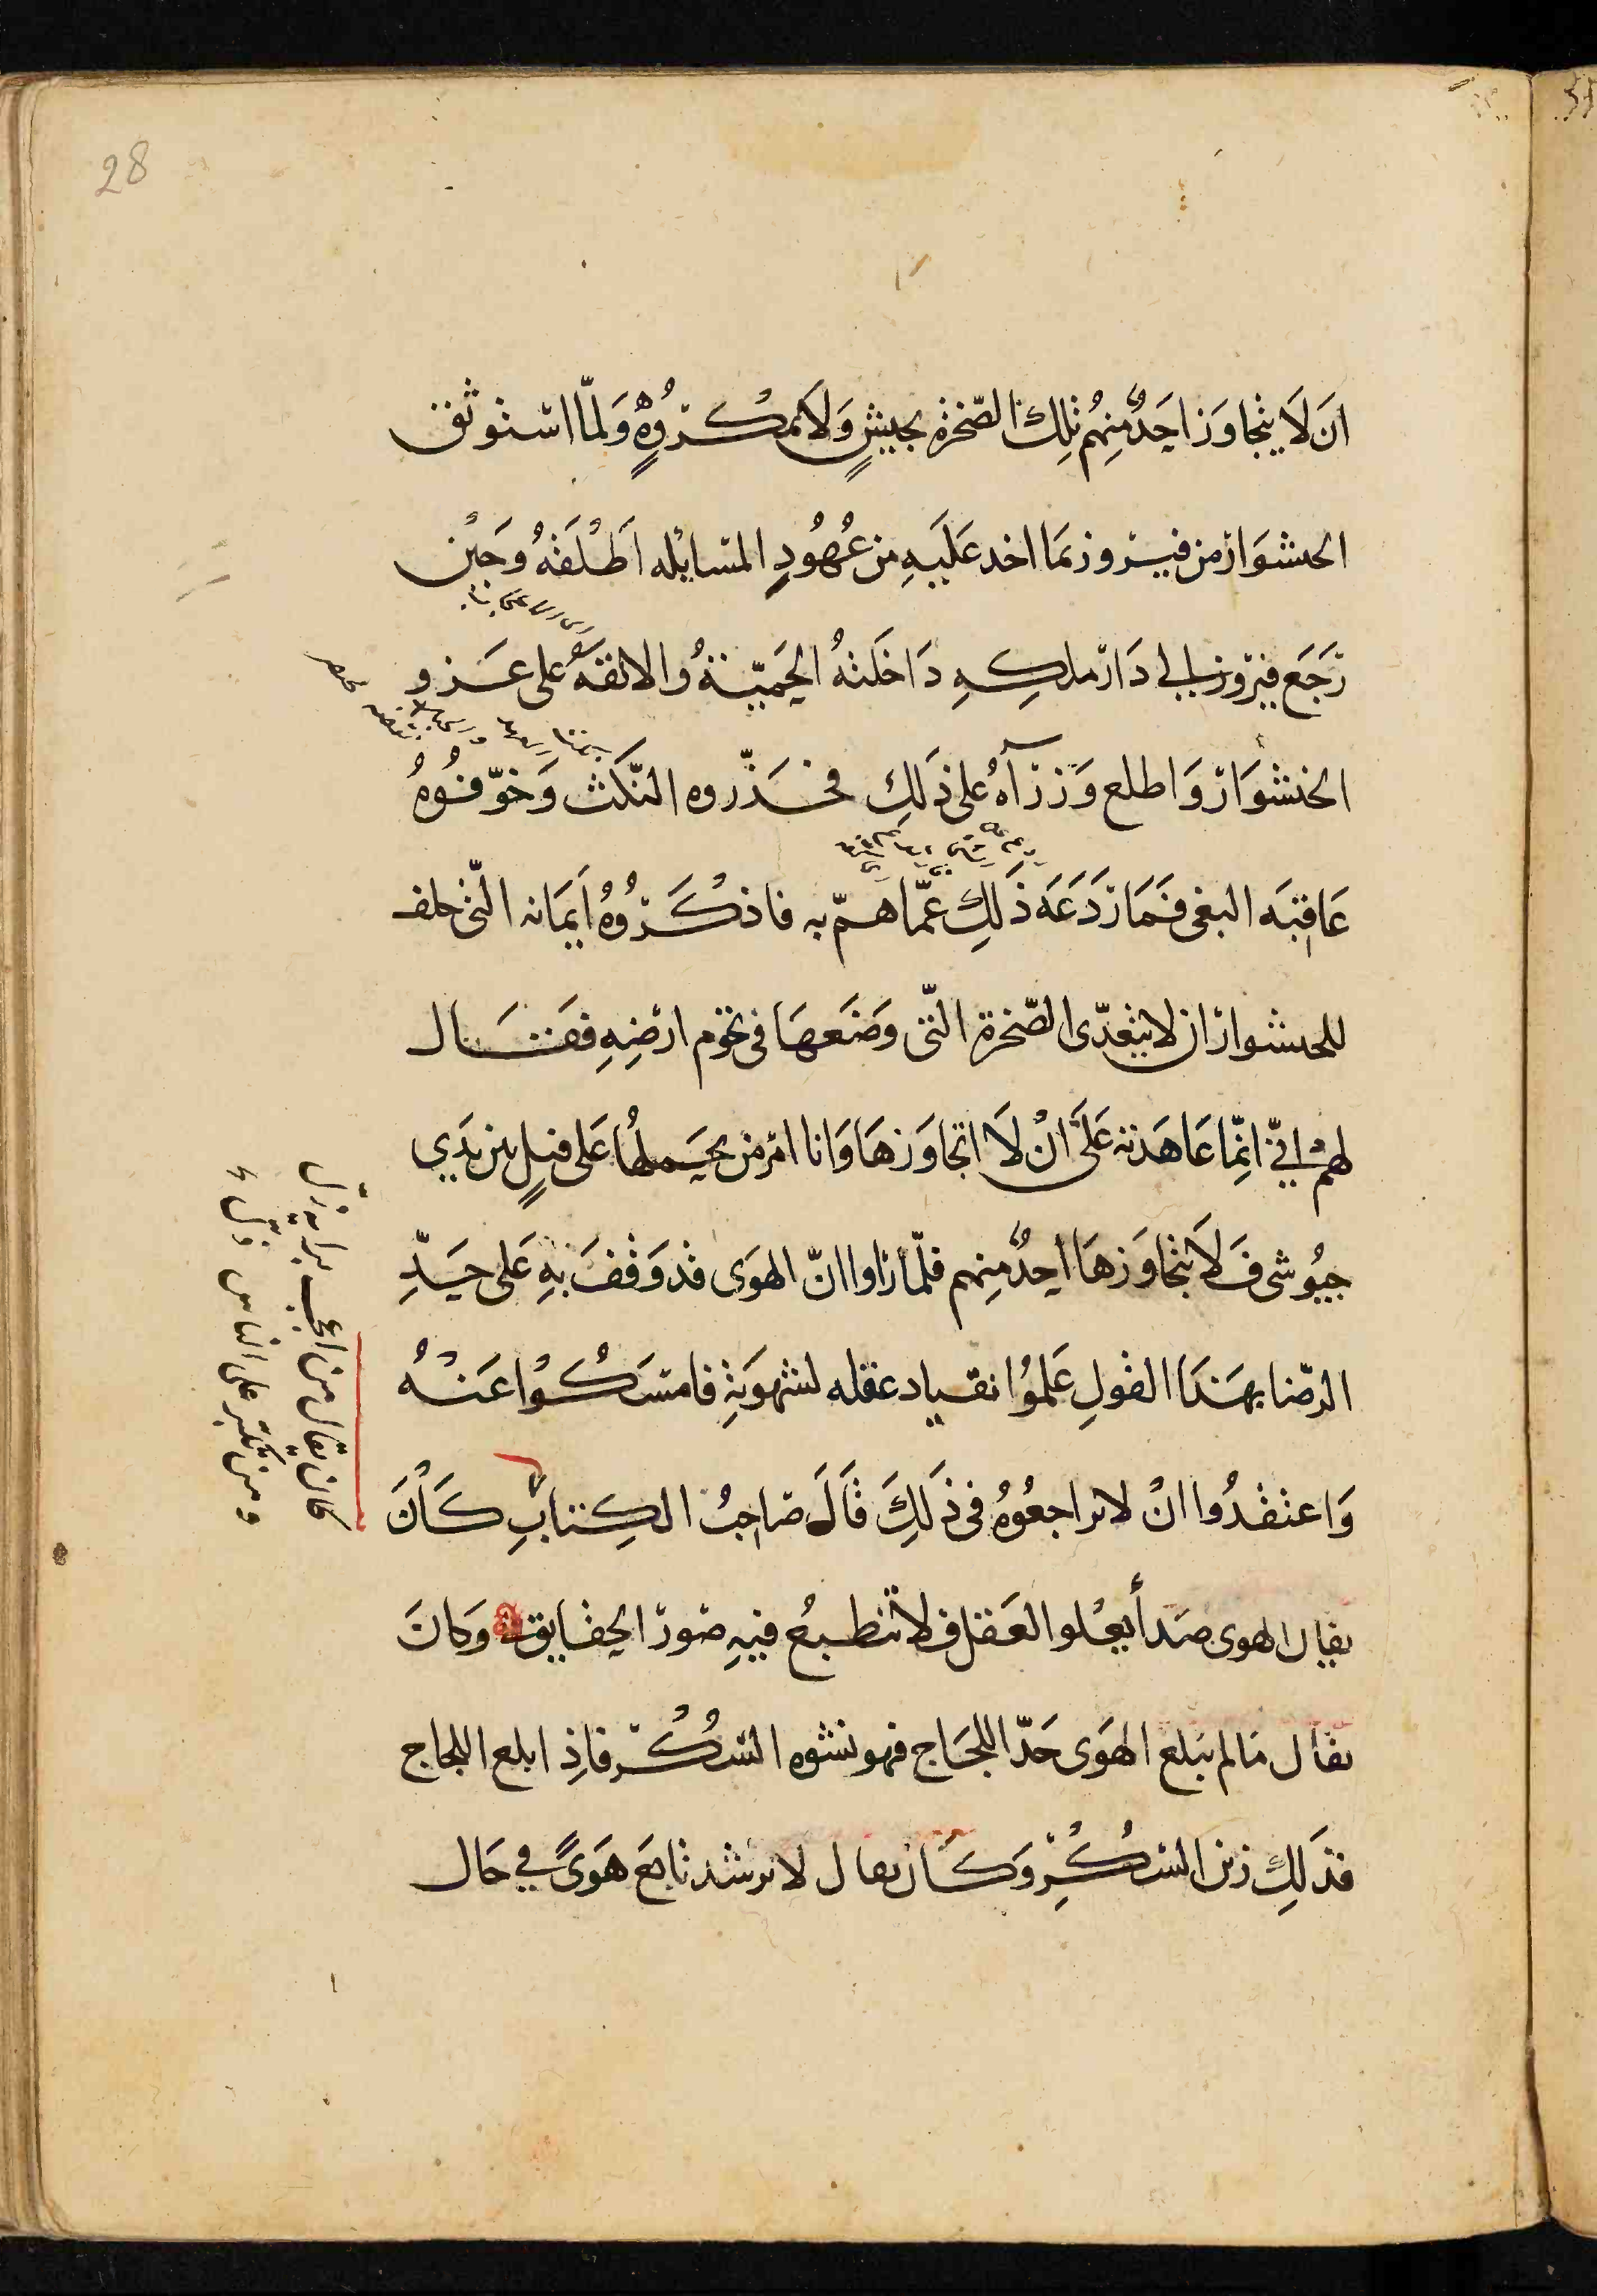 28
اَن لَا يتجاوَز احَدٌ مِنهُم تِلكَ الصّخرة بجيشٍ وَلَا بمكرُوهٍ وَلمّا استوثق
الحشوَاز من فيروز بمَا اخد عَليَهِ مِن عُهُودِ المسايله اَطْلَقهُ وحَيْن
رَجَع فيَروز الى دَار ملكِهِ دَاخَلتهُ الحَميّةُ والانفهُ على عَزو
الخنشوَاز وَاطلع وَزرَآهُ على ذَلِكِ فحَذّروه النّكث وَخوّفوُهُ
عَاقِبَه البغى فَمَا رَدَعَهَ ذَلِكِ عَمّا هَمّ به فاذكَرُوهُ اَيمَانه الّتى حلف
للحشواز ان لا يتعدّى الصّخرة التّى وَضَعهَا فى تخوم ارضِهِ فقَال
لهمْ اِنيّ انِّما عَاهَدته عَلَى اَنْ لَا اتجاوَزهَا وَانا امُر من يحَملُهَا عَلى فيلٍ بين يَدَي
جيُوشى فَلَا يتجَاوَزهَا احدٌ مِنهم فلّما رَاوا انّ الهوَى قدْ وَقفَ بهِ عَلى حَدِّ
الرّضا بهَذَا القولِ عَلموُا انقياد عقله لشهوَتهِ فامسَكُوْا عَنْهُ
وَاعتقدُوا انْ لا يراجعُوُهُ فى ذَلِكَ قَالَ صَاحِبُ الكِتابِ كَاْنَ
يقال الهوى صَدأ يعْلو العَقل فلا تنطبعُ فيهِ صوَر الحقايق وَكانَ
يقال مَا لم يَبلغ الهَوى حَدّ اللجَاج فهو نشوه السُكْر فاذِا بلغ اللجاج
فذَلِكِ رَين السُكْرِ وَكَان يقال لا يرشد تابعَ هَوىً في حَال
كان يقال من اعجب برايه زلّ
ومن تكبّر على الناس ذلّ